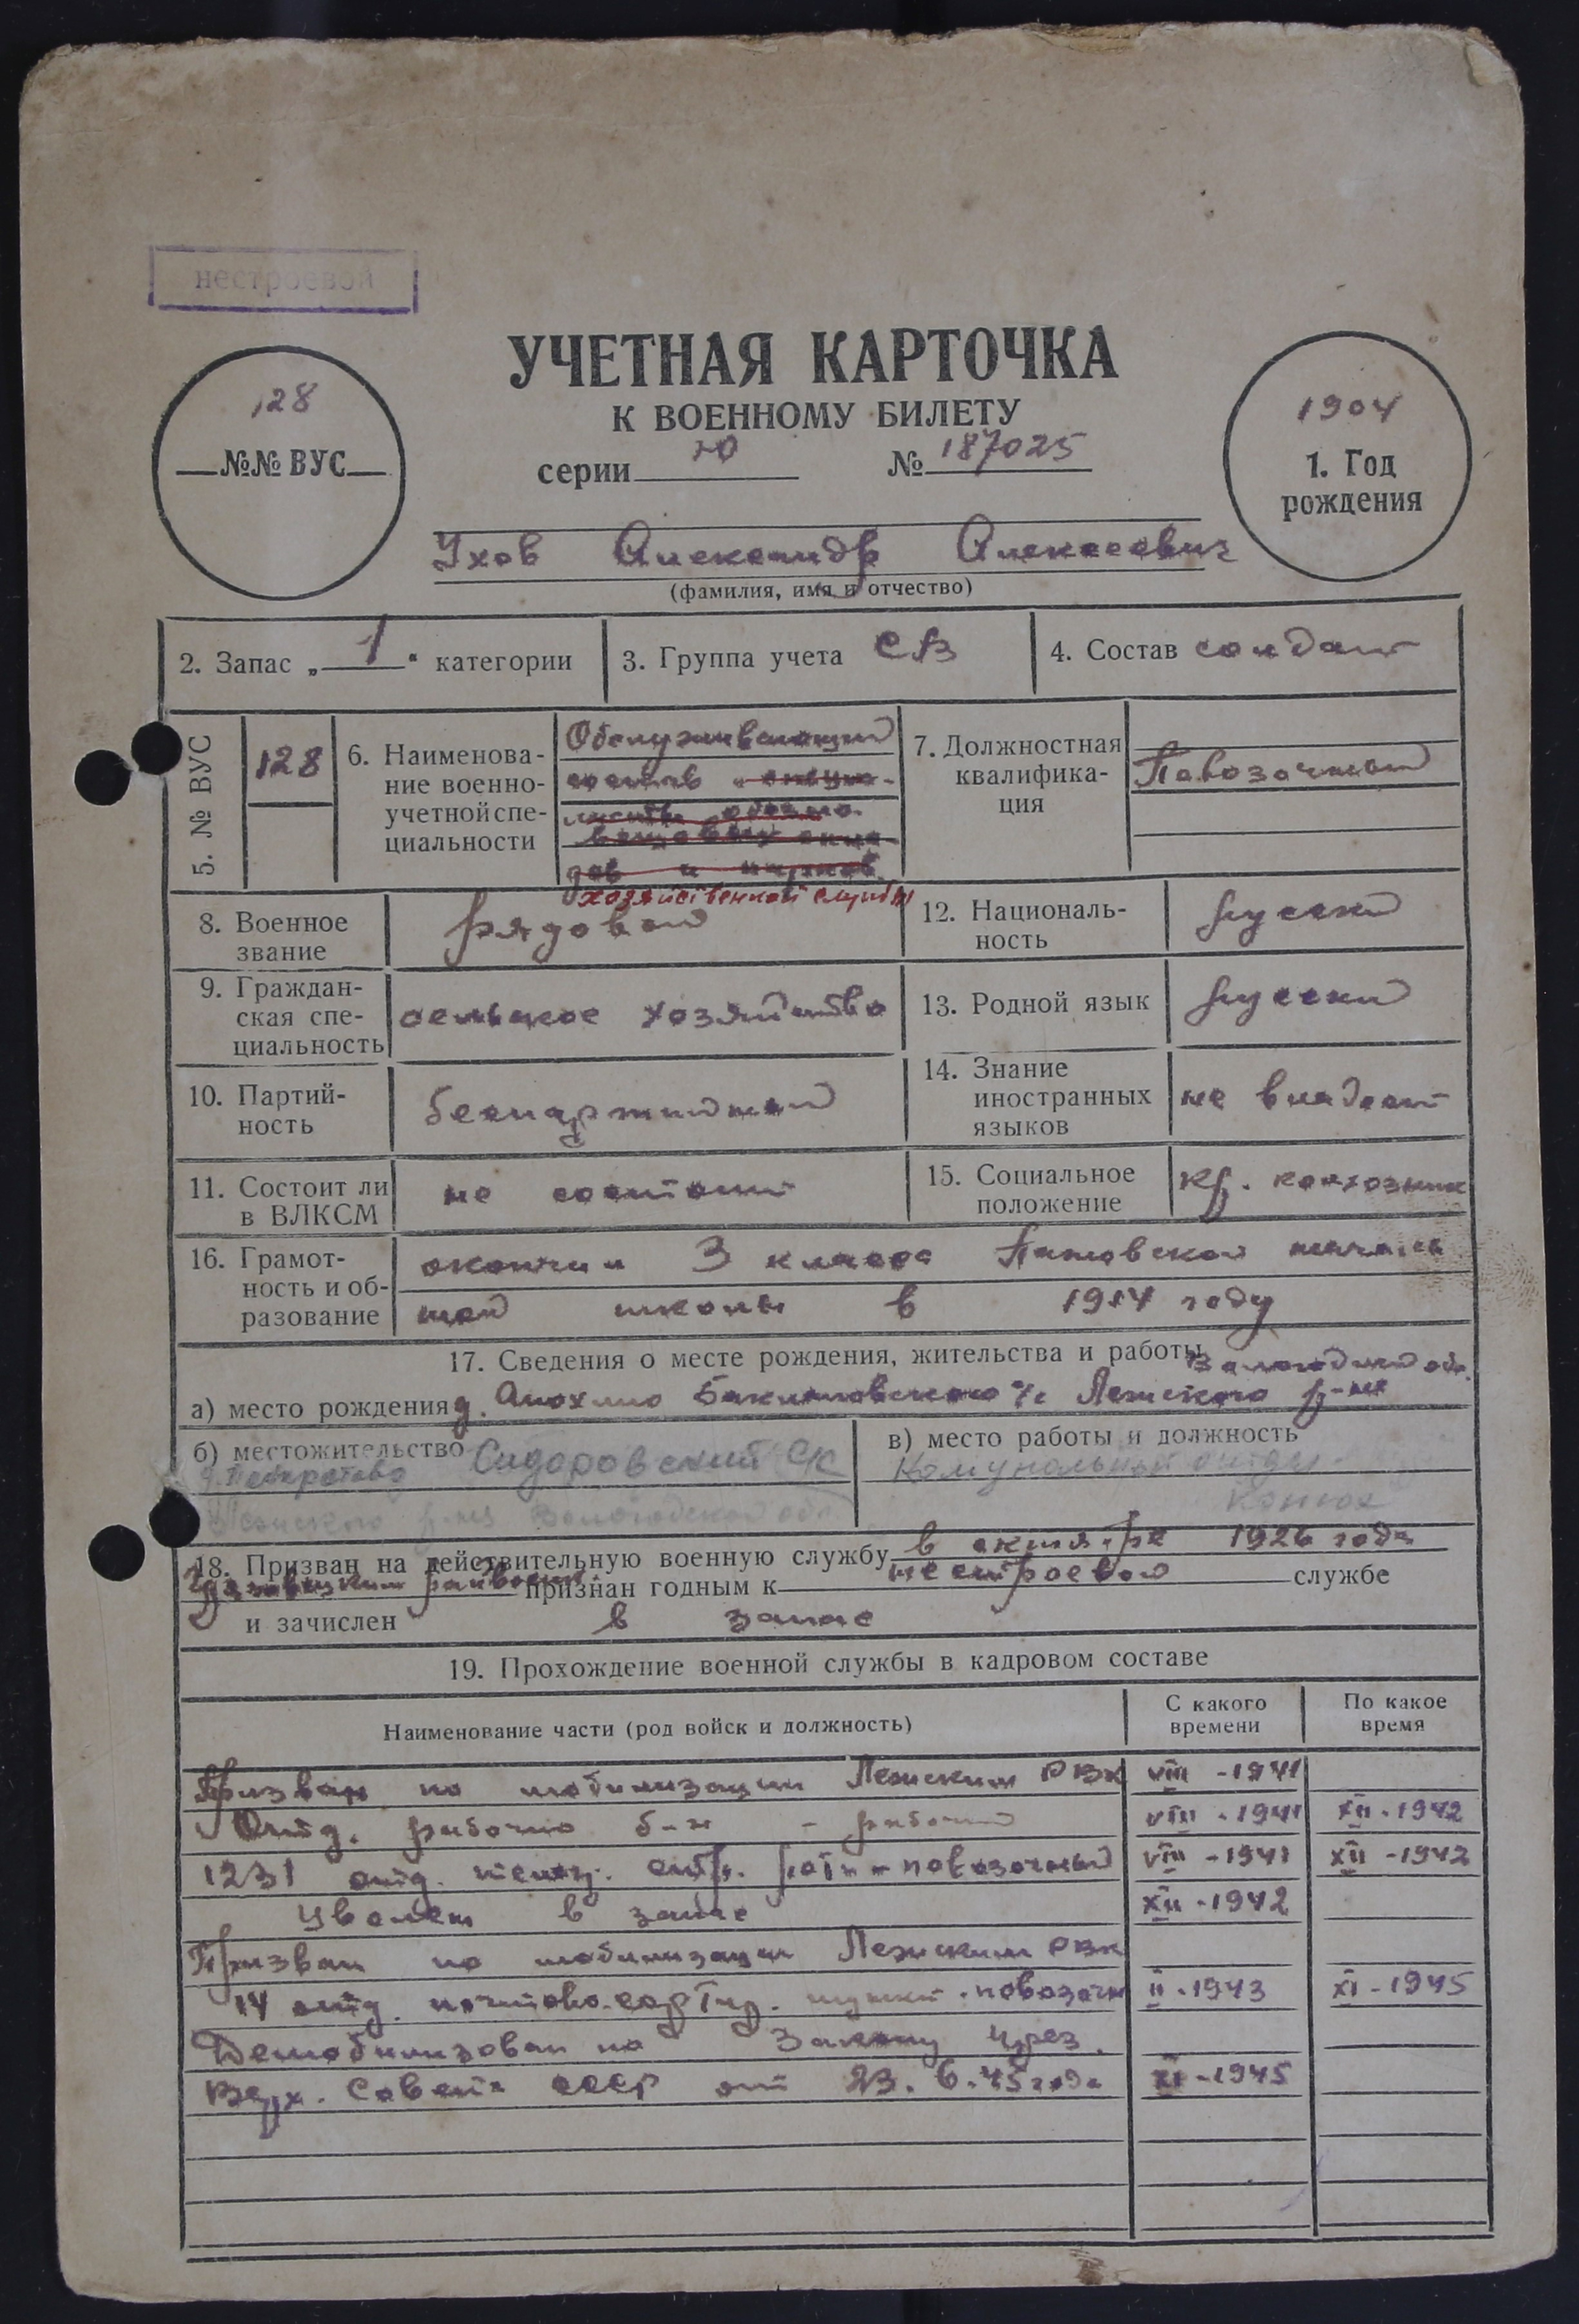 нестроевой
УЧЕТНАЯ КАРТОЧКА
К ВОЕННОМУ БИЛЕТУ
серии Ю № 187025
128
№№ ВУС
1904
1. Год
рождения
Ухов Александр Алексеевич
(фамилия, имя и отчество)
2. Запас „ 1 " категории
3. Группа учета СА
4. Состав солдат
5. № ВУС
128
6. Наименова-
ние военно-
учетной спе-
циальности
Обслуживающий
состав
дов и парков
хозяйственной службы
7. Должностная
квалифика-
ция
Повозочный
8. Военное
звание
рядовой
12. Националь-
ность
русский
9. Граждан-
ская спе-
циальность
сельское хозяйство
13. Родной язык
русский
10. Партий-
ность
беспартийный
14. Знание
иностранных
языков
не владеет
11. Состоит ли
в ВЛКСМ
не состоит
15. Социальное
положение
кр. колхозник
16. Грамот-
ность и об-
разование
окончил 3 класса началь
ной школы в 1914 году
17. Сведения о месте рождения, жительства и работы
Вологодской обл.
а) место рождения д. Анохино с/с Лежского р-на
б) местожительство Сидоровский с/с
Лежского р-на Вологодской обл
в) место работы и должность
Комунальный отдел
конюх
18. Призван на действительную военную службу в октябре 1926 года
райвоенк. признан годным к нестроевой службе
и зачислен в запас
19. Прохождение военной службы в кадровом составе
Наименование части (род войск и должность)
С какого
времени
По какое
время
Призван по мобилизации Лежским РВК VIII - 1941
Отд. рабочий б-н - рабочий VIII - 1941 XII - 1942
1231 отд. стр. рота - повозочный VIII - 1941 XII - 1942
Уволен в запас XII - 1942
Призван по мобилизации Лежским РВК
14 отд. почтово-сортир. пункт - повозочн II - 1943 XI - 1945
Демобилизован по Закону През.
Верх. Совета СССР от 23. 6. 45 года XI - 1945